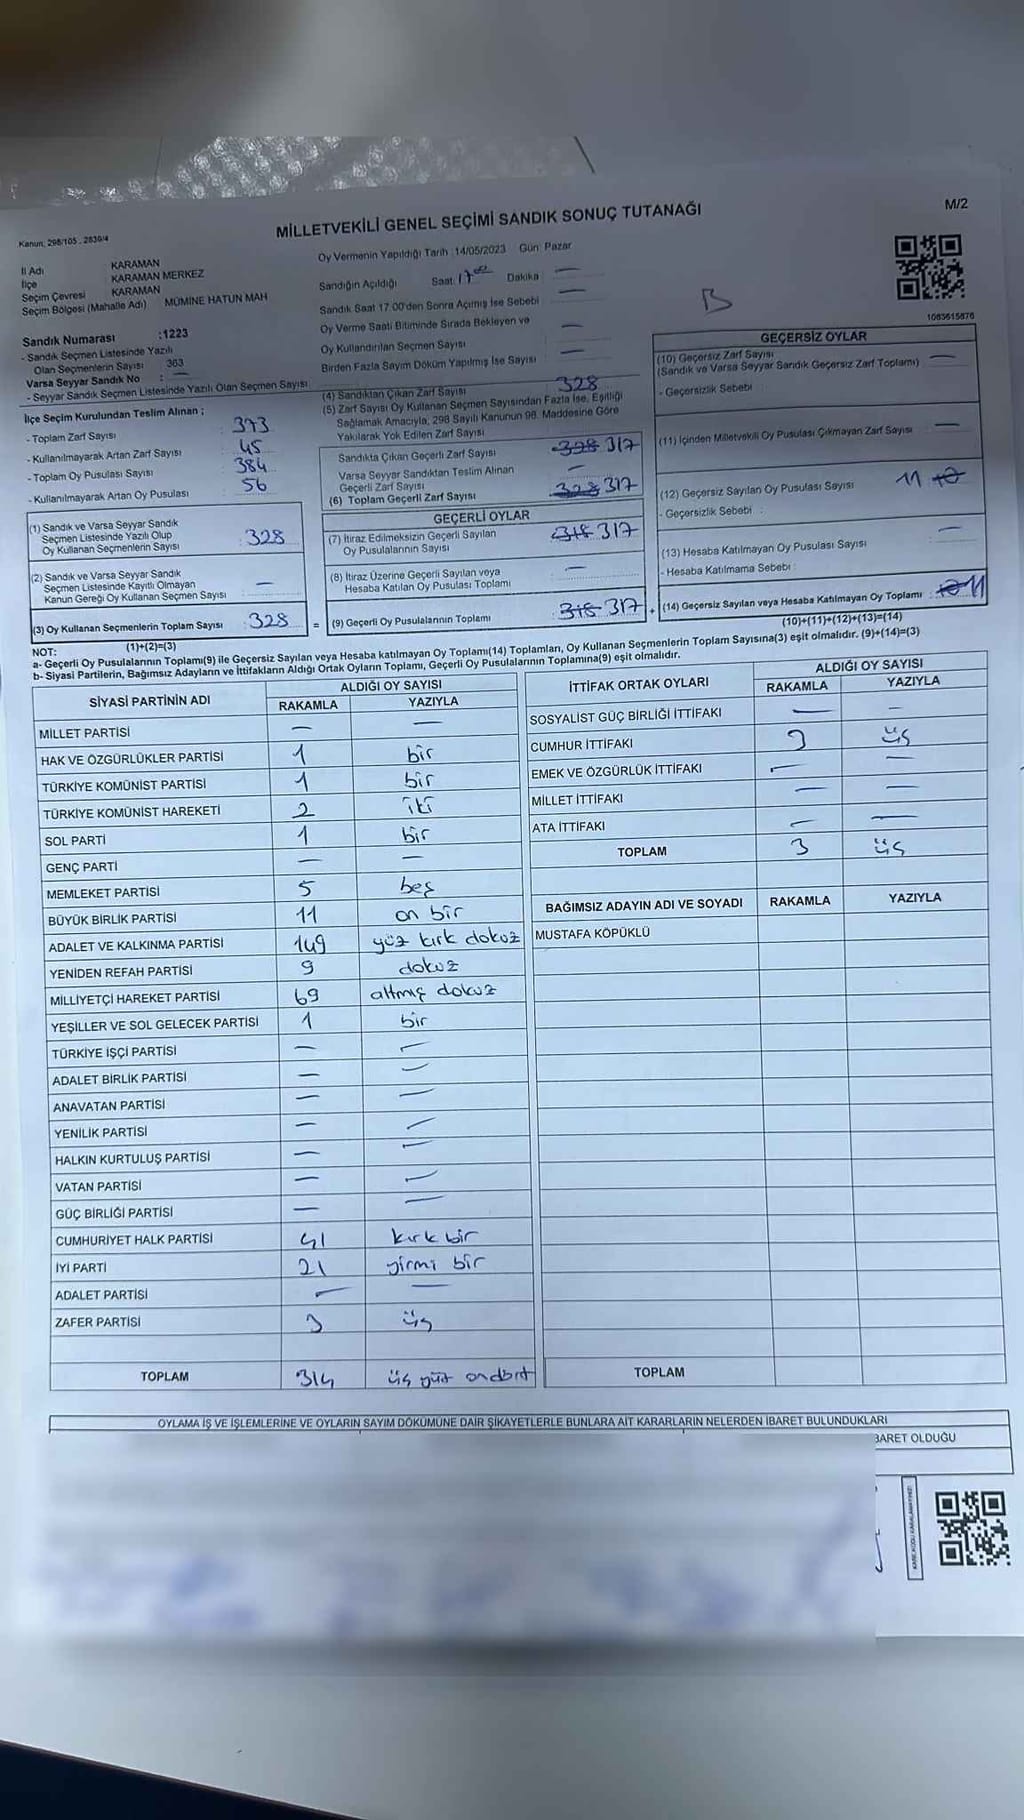 MİLLETVEKİLİ GENEL SEÇİMİ SANDIK SONUÇ TUTANAĞI
M/2
Kanun, 298/105 , 2839/4
İl Adı KARAMAN
İlçe KARAMAN MERKEZ
Seçim Çevresi KARAMAN
Seçim Bölgesi (Mahalle Adı) MÜMİNE HATUN MAH
Sandık Numarası :1223
- Sandık Seçmen Listesinde Yazılı
Olan Seçmenlerin Sayısı 363
Varsa Seyyar Sandık No : —
- Seyyar Sandık Seçmen Listesinde Yazılı Olan Seçmen Sayısı
İlçe Seçim Kurulundan Teslim Alınan ;
- Toplam Zarf Sayısı 373
- Kullanılmayarak Artan Zarf Sayısı 45
- Toplam Oy Pusulası Sayısı 384
- Kullanılmayarak Artan Oy Pusulası 56
(1) Sandık ve Varsa Seyyar Sandık
Seçmen Listesinde Yazılı Olup
Oy Kullanan Seçmenlerin Sayısı 328
(2) Sandık ve Varsa Seyyar Sandık
Seçmen Listesinde Kayıtlı Olmayan
Kanun Gereği Oy Kullanan Seçmen Sayısı —
(3) Oy Kullanan Seçmenlerin Toplam Sayısı 328 =
(1)+(2)=(3)
Oy Vermenin Yapıldığı Tarih :14/05/2023 Gün: Pazar
Sandığın Açıldığı Saat 17 00 Dakika —
Sandık Saat 17.00'den Sonra Açımış İse Sebebi —
Oy Verme Saati Bitiminde Sırada Bekleyen ve
Oy Kullandırılan Seçmen Sayısı —
Birden Fazla Sayım Döküm Yapılmış İse Sayısı —
(4) Sandıktan Çıkan Zarf Sayısı 328
(5) Zarf Sayısı Oy Kullanan Seçmen Sayısından Fazla İse, Eşitliği
Sağlamak Amacıyla, 298 Sayılı Kanunun 98. Maddesine Göre
Yakılarak Yok Edilen Zarf Sayısı
Sandıkta Çıkan Geçerli Zarf Sayısı 328 317
Varsa Seyyar Sandıktan Teslim Alınan
Geçerli Zarf Sayısı —
(6) Toplam Geçerli Zarf Sayısı 328 317
GEÇERLİ OYLAR
(7) İtiraz Edilmeksizin Geçerli Sayılan
Oy Pusulalarının Sayısı 318 317
(8) İtiraz Üzerine Geçerli Sayılan veya
Hesaba Katılan Oy Pusulası Toplamı —
(9) Geçerli Oy Pusulalarının Toplamı 318 317 +
B
1083615876
GEÇERSİZ OYLAR
(10) Geçersiz Zarf Sayısı
(Sandık ve Varsa Seyyar Sandık Geçersiz Zarf Toplamı) —
- Geçersizlik Sebebi
(11) İçinden Milletvekili Oy Pusulası Çıkmayan Zarf Sayısı —
(12) Geçersiz Sayılan Oy Pusulası Sayısı 11 10
- Geçersizlik Sebebi :
(13) Hesaba Katılmayan Oy Pusulası Sayısı —
- Hesaba Katılmama Sebebi :
(14) Geçersiz Sayılan veya Hesaba Katılmayan Oy Toplamı : 10 11
(10)+(11)+(12)+(13)=(14)
NOT:
a- Geçerli Oy Pusulalarının Toplamı(9) ile Geçersiz Sayılan veya Hesaba katılmayan Oy Toplamı(14) Toplamları, Oy Kullanan Seçmenlerin Toplam Sayısına(3) eşit olmalıdır. (9)+(14)=(3)
b- Siyasi Partilerin, Bağımsız Adayların ve İttifakların Aldığı Ortak Oyların Toplamı, Geçerli Oy Pusulalarının Toplamına(9) eşit olmalıdır.
SİYASİ PARTİNİN ADI ALDIĞI OY SAYISI
RAKAMLA YAZIYLA
MİLLET PARTİSİ — —
HAK VE ÖZGÜRLÜKLER PARTİSİ 1 bir
TÜRKİYE KOMÜNİST PARTİSİ 1 bir
TÜRKİYE KOMÜNİST HAREKETİ 2 iki
SOL PARTİ 1 bir
GENÇ PARTİ — —
MEMLEKET PARTİSİ 5 beş
BÜYÜK BİRLİK PARTİSİ 11 on bir
ADALET VE KALKINMA PARTİSİ 149 yüz kırk dokuz
YENİDEN REFAH PARTİSİ 9 dokuz
MİLLİYETÇİ HAREKET PARTİSİ 69 altmış dokuz
YEŞİLLER VE SOL GELECEK PARTİSİ 1 bir
TÜRKİYE İŞÇİ PARTİSİ — —
ADALET BİRLİK PARTİSİ — —
ANAVATAN PARTİSİ — —
YENİLİK PARTİSİ — —
HALKIN KURTULUŞ PARTİSİ — —
VATAN PARTİSİ — —
GÜÇ BİRLİĞİ PARTİSİ — —
CUMHURİYET HALK PARTİSİ 41 kırk bir
İYİ PARTİ 21 yirmi bir
ADALET PARTİSİ — —
ZAFER PARTİSİ 3 üç
TOPLAM 314 üç yüz ondört
İTTİFAK ORTAK OYLARI ALDIĞI OY SAYISI
RAKAMLA YAZIYLA
SOSYALİST GÜÇ BİRLİĞİ İTTİFAKI — —
CUMHUR İTTİFAKI 3 üç
EMEK VE ÖZGÜRLÜK İTTİFAKI — —
MİLLET İTTİFAKI — —
ATA İTTİFAKI — —
TOPLAM 3 üç
BAĞIMSIZ ADAYIN ADI VE SOYADI RAKAMLA YAZIYLA
MUSTAFA KÖPÜKLÜ
TOPLAM
OYLAMA İŞ VE İŞLEMLERİNE VE OYLARIN SAYIM DÖKÜMÜNE DAİR ŞİKAYETLERLE BUNLARA AİT KARARLARIN NELERDEN İBARET BULUNDUKLARI
BARET OLDUĞU